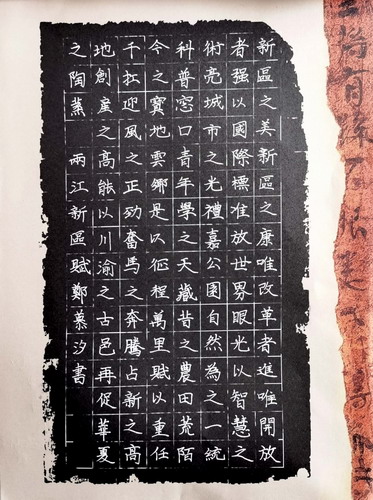 新區之美新區之康唯改革者進唯開放
者强以國際標准放世界眼光以智慧之
術亮城市之光禮嘉公園自然為之一統
科普窓口青年學之天藏昔之農田荒陌
今之寶地雲鄉是以征程萬里賦以重任
千扛迎風之正勁奮馬之奔騰占新之高
地創産之高能以川渝之古邑再促華夏
之陶蒸 兩江新區賦鄭慕汐書